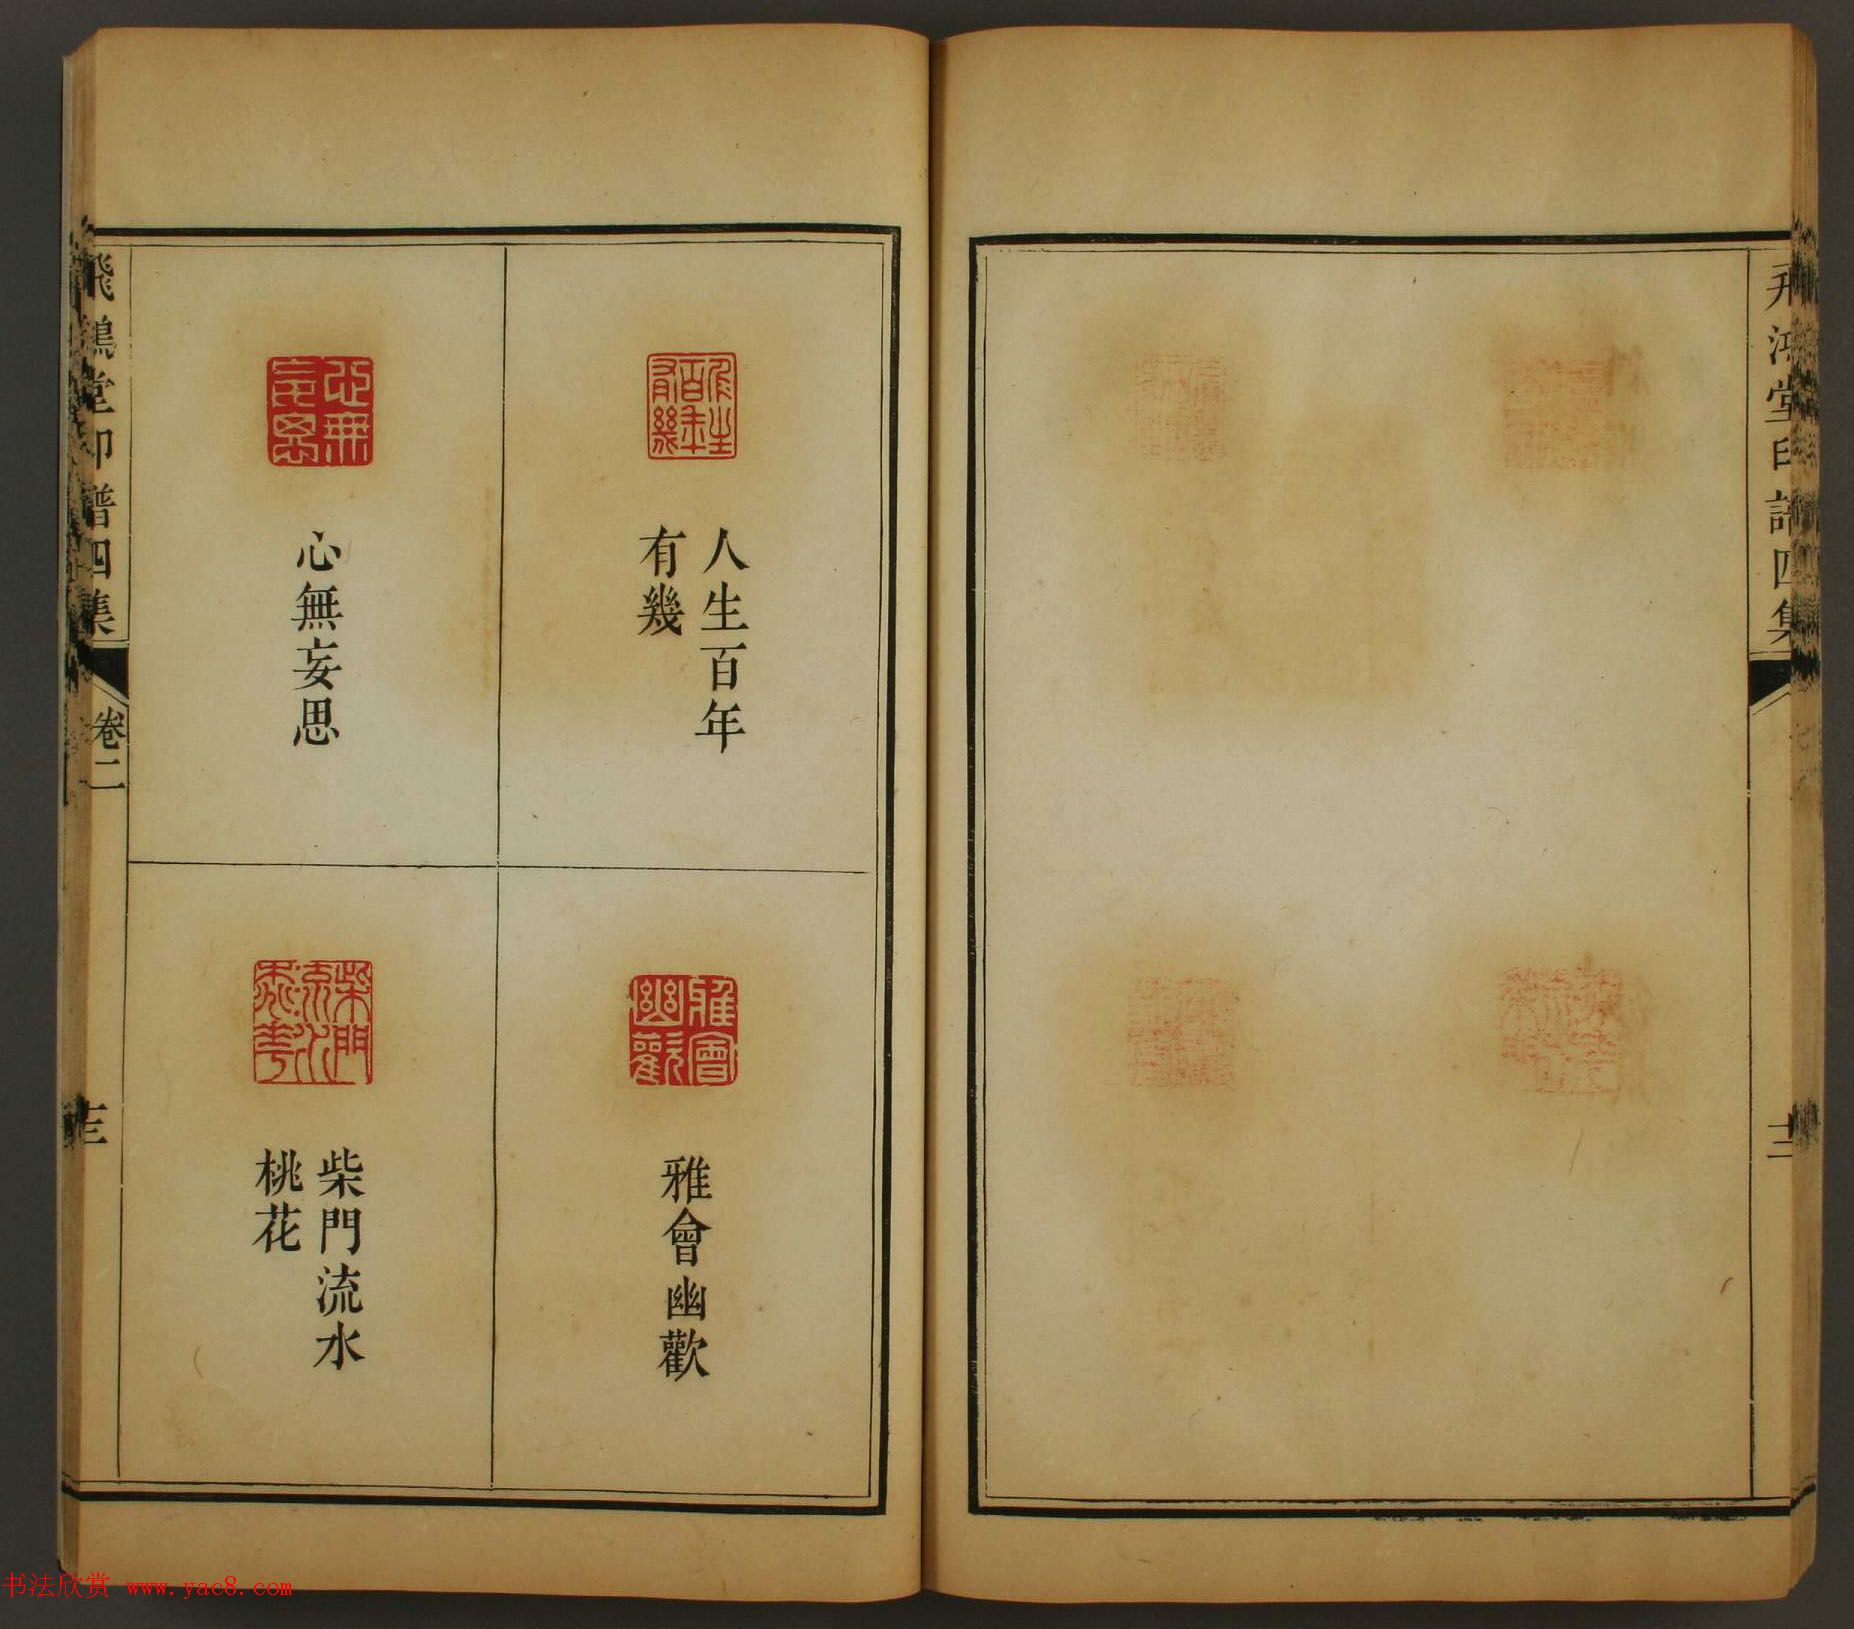 飛鴻堂印譜四集
人生百年
有幾
心無妄思
雅會幽歡
柴門流水
桃花
飛鴻堂印譜四集
卷二
書法欣赏 www.yac8.com